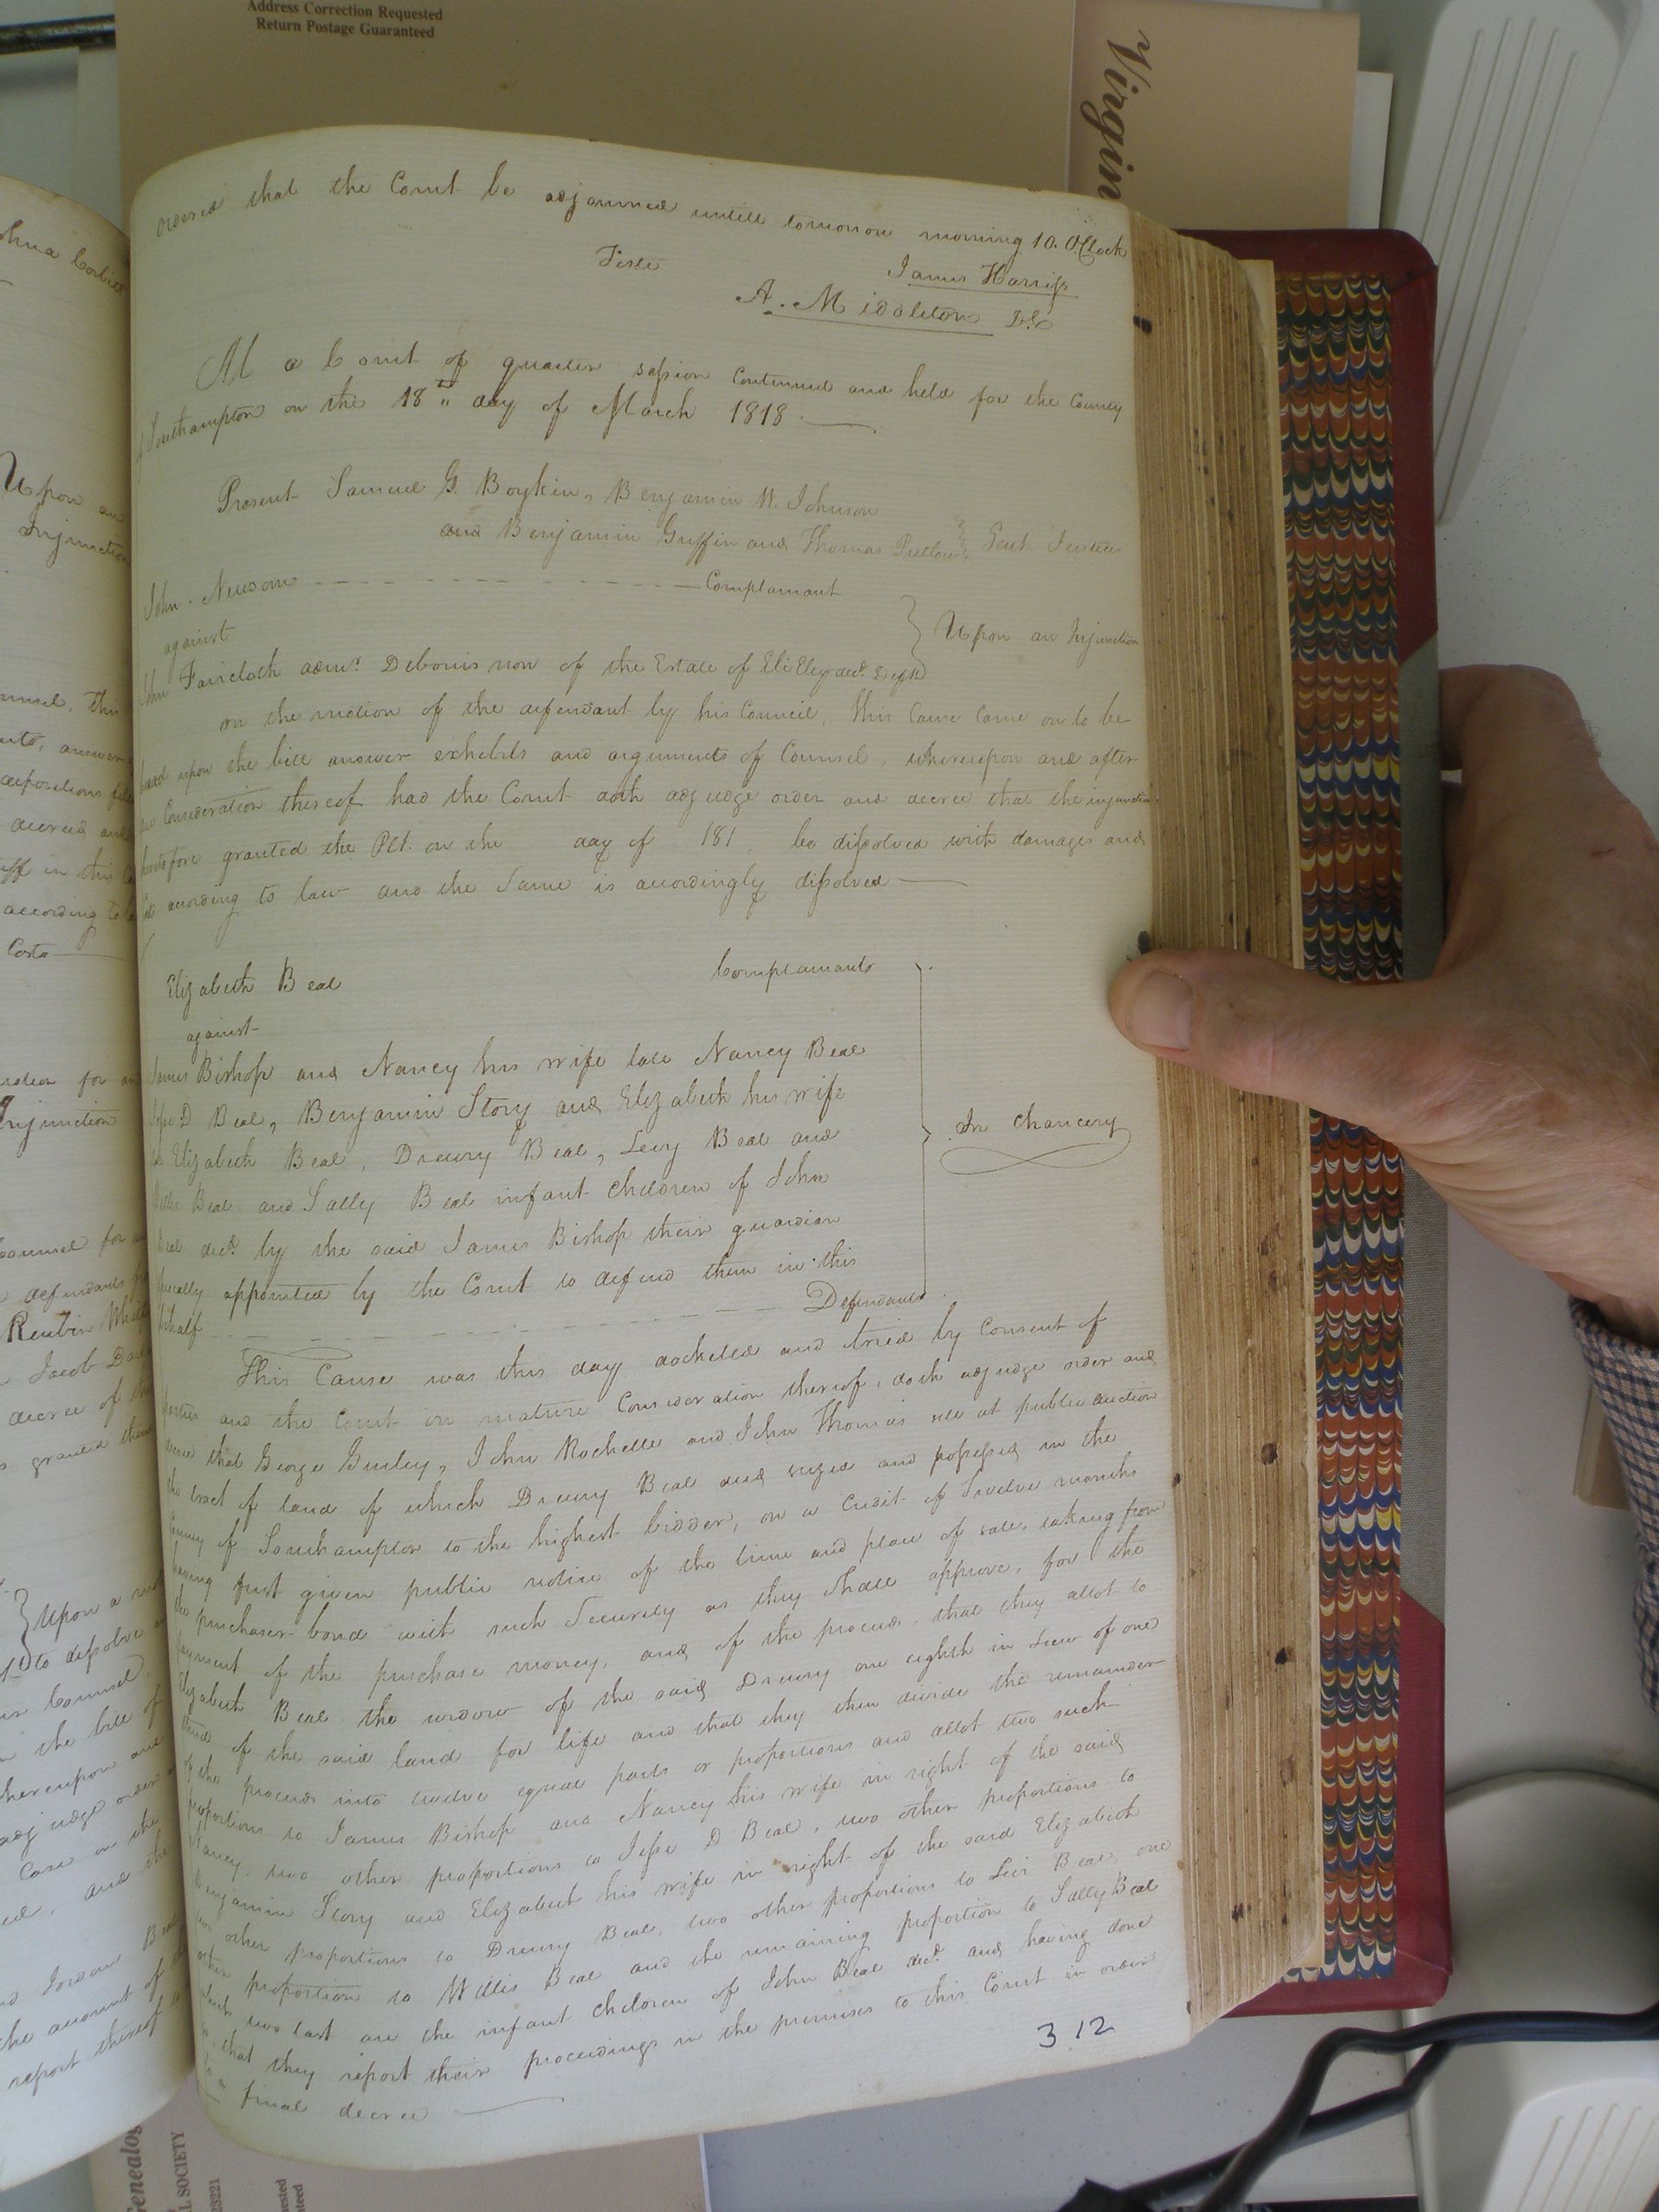 Address Correction Requested
Return Postage Guaranteed
Virgin
ordered that the Court be adjourned untill tomorrow morning 10. OClock
Teste
James Harriss
A. Middleton DC
At a Court of quarter session Continued and held for the County
of Southampton on the 18th day of March 1818.
Present Samuel G. Boykin, Benjamin W. Johnson
and Benjamin Griffin and Thomas Pretlow Gent. Justices
John Newsom Complainant
against
Upon an Injunction
John Faircloth admr. Debonis non of the Estate of Eli Eley decd. Deft
on the motion of the defendant by his Council, this Cause Came on to be
heard upon the bill answer exhibits and arguments of Counsel, whereupon and after
due Consideration thereof had the Court doth adjudge order and decree that the injunction
heretofore granted the Plt. on the day of 181 be dissolved with damages and
costs according to law and the Same is accordingly dissolved
Elizabeth Beal Complainants
against
James Bishop and Nancy his wife late Nancy Beal
Jesse D Beal, Benjamin Story and Elizabeth his wife
late Elizabeth Beal, Drewry Beal, Levy Beal and
Willis Beal and Sally Beal infant Children of John
Beal decd. by the said James Bishop their guardian
specially appointed by the Court to defend them in this
behalf Defendants
In Chancery
This Cause was this day docketed and tried by Consent of
parties and the Court on mature Consideration thereof, doth adjudge order and
decree that George Gurley, John Rochelle and John Thomas sell at public auction
the tract of land of which Drewry Beal died seized and possessed in the
County of Southampton to the highest bidder, on a Credit of Twelve months
having first given public notice of the time and place of sale, taking from
the purchaser bond with such Security as they shall approve, for the
payment of the purchase money, and of the proceeds that they allot to
Elizabeth Beal the widow of the said Drewry one eighth in Lieu of one
third of the said land for life and that they then divide the remainder
of the proceeds into twelve equal parts or proportions and allot two such
proportions to James Bishop and Nancy his wife in right of the said
Nancy. two other proportions to Jesse D Beal, two other proportions to
Benjamin Story and Elizabeth his wife in right of the said Elizabeth
two other proportions to Drewry Beal, two other proportions to Levi Beal, one
other proportion to Willis Beal and the remaining proportion to Sally Beal
which two last are the infant Children of John Beal decd. and having done
so, that they report their proceedings in the premises to this Court in order
to a final decree
312
Upon an
Injunction
answer
according to
Costs
Injunction
Reubin
Jacob
decree of
Upon a
to dissolve
Counsel
the bill of
adjudge order
Case on the
and the
Jordan
the amount of
report thereof
Genealog
L SOCIETY
23221